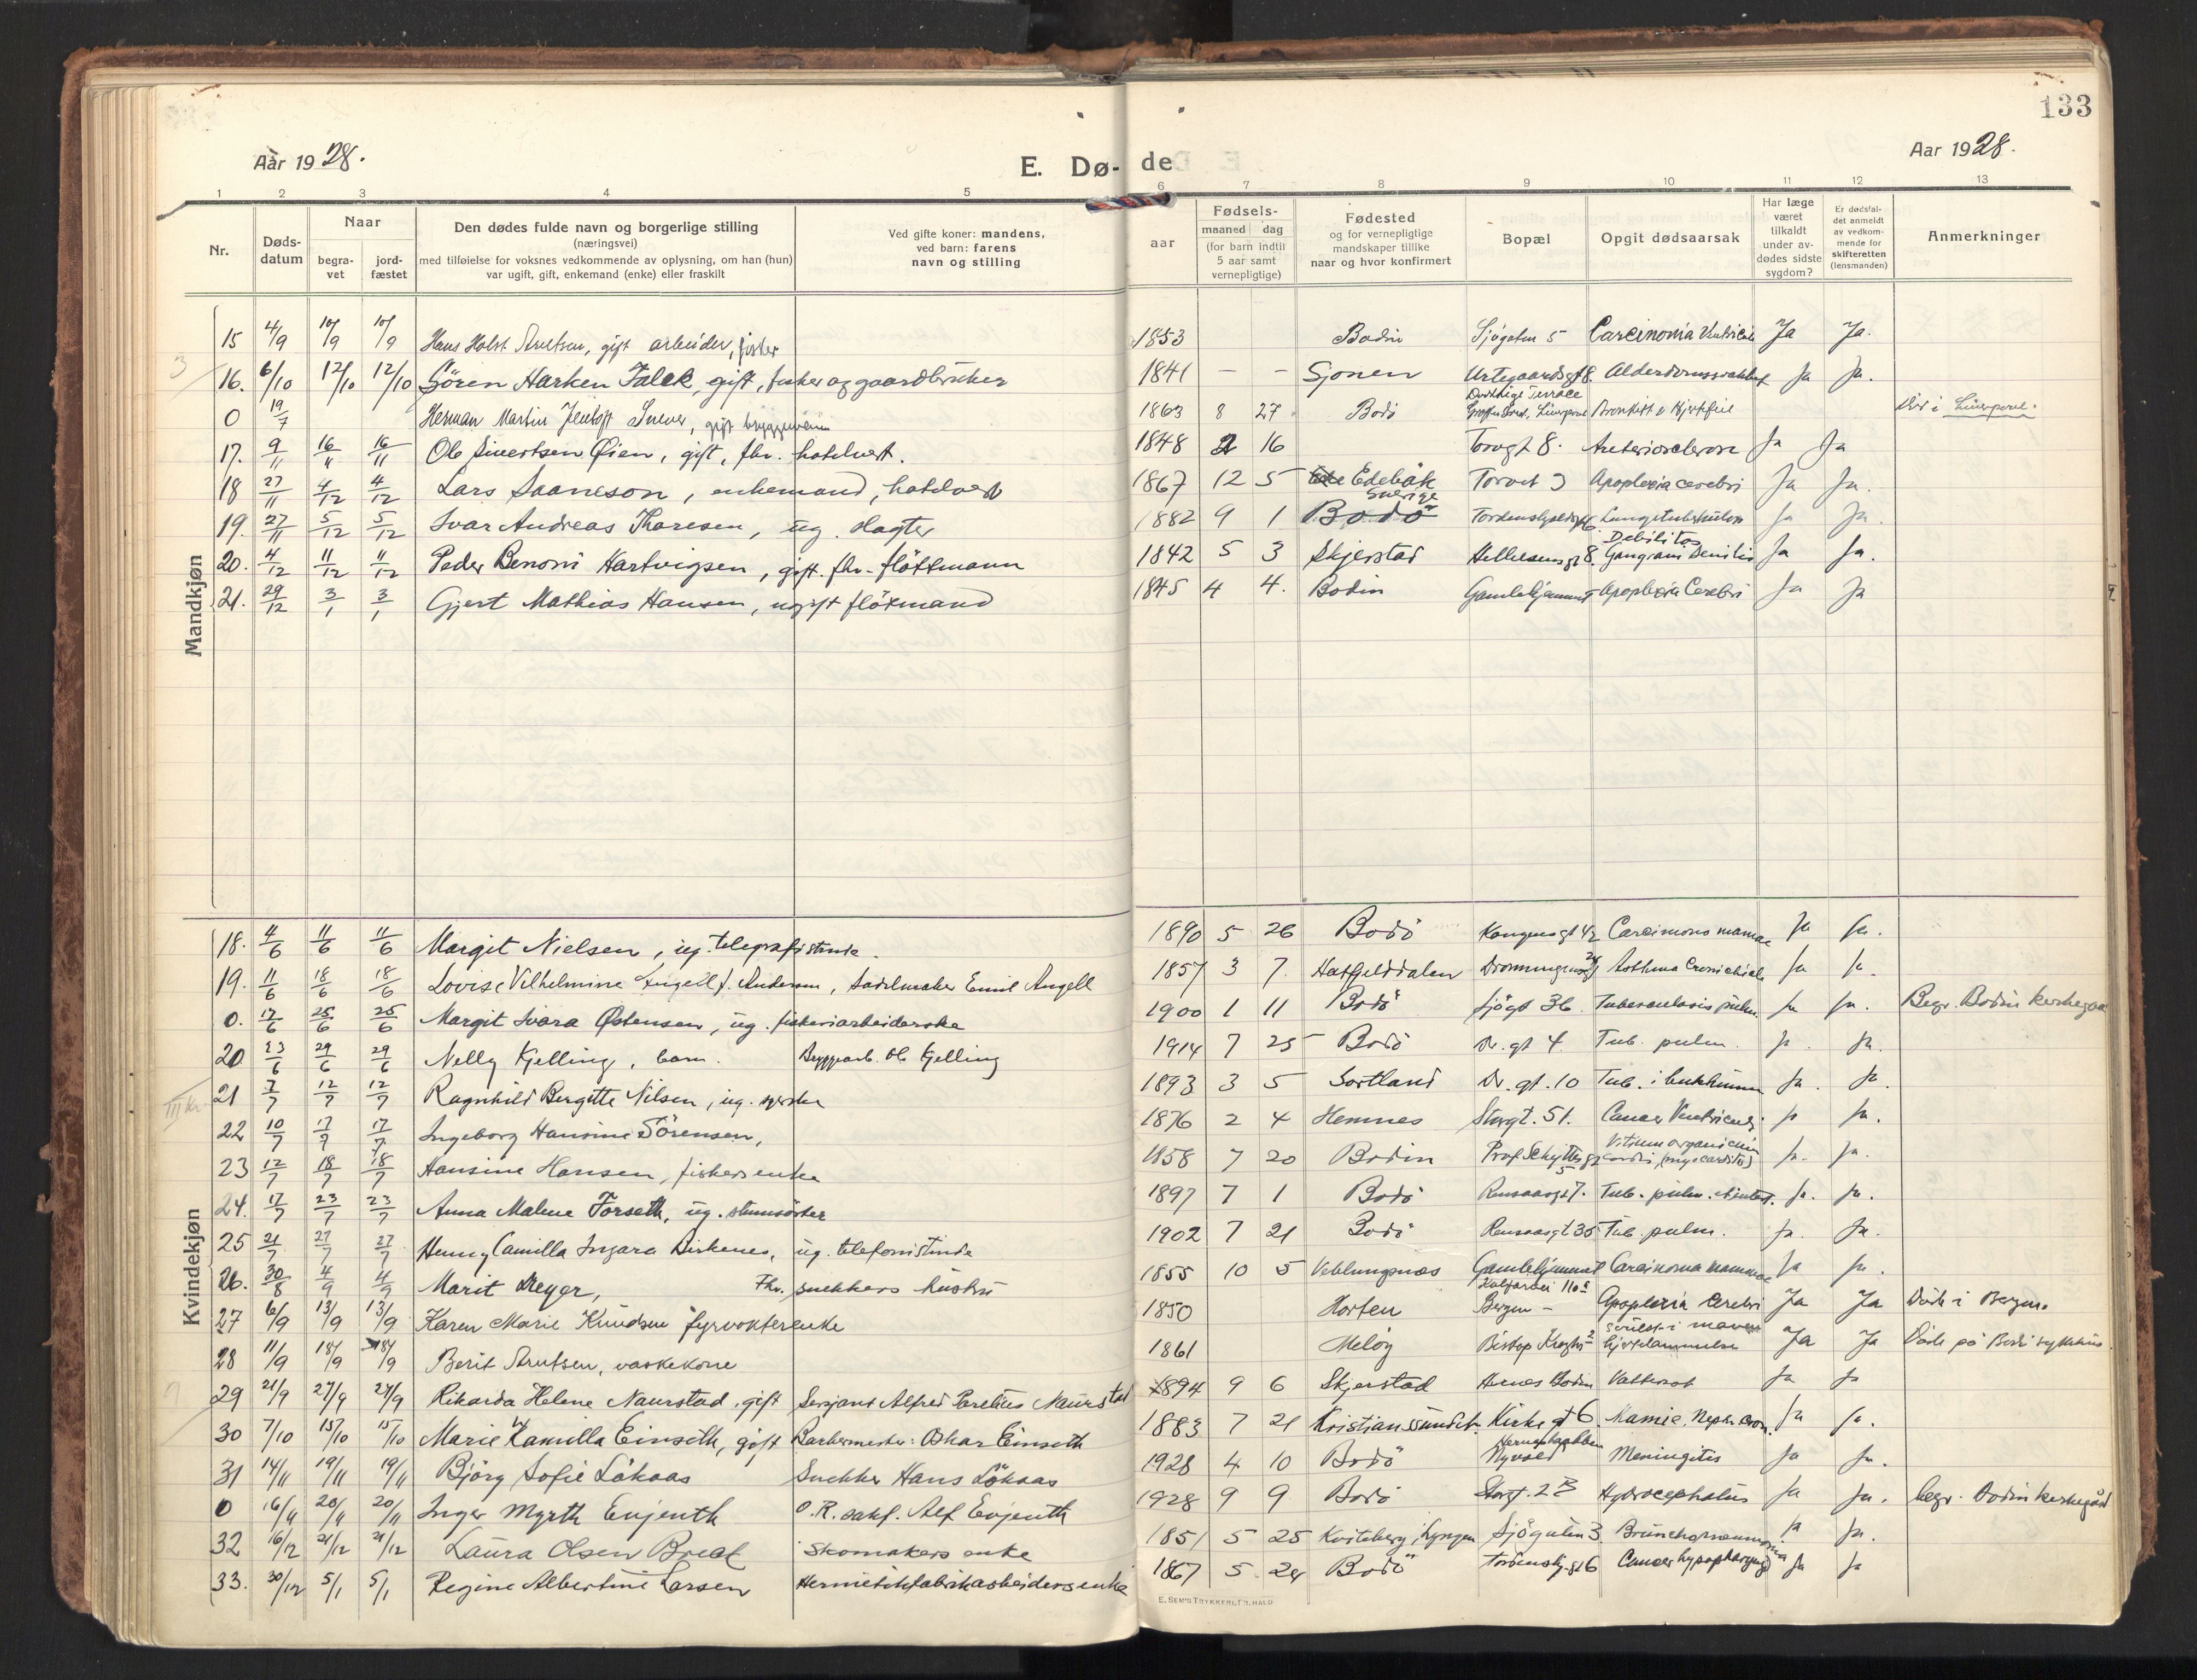 133
Aar 1928.
E. Dø- de
Aar 1928.
1 2 3 4 5 6 7 8 9 10 11 12 13
Nr.
Døds-
datum
Naar
begra-
vet
jord-
fæstet
Den dødes fulde navn og borgerlige stilling
(næringsvei)
med tilføielse for voksnes vedkommende av oplysning, om han (hun)
var ugift, gift, enkemand (enke) eller fraskilt
Ved gifte koner: mandens,
ved barn: farens
navn og stilling
aar
Fødsels-
maaned dag
(for barn indtil
5 aar samt
vernepligtige)
Fødested
og for vernepligtige
mandskaper tillike
naar og hvor konfirmert
Bopæl
Opgit dødsaarsak
Har læge
været
tilkaldt
under av-
dødes sidste
sygdom?
Er dødsfal-
det anmeldt
av vedkom-
mende for
skifteretten
(lensmanden)
Anmerkninger
Mandkjøn
15 4/9 10/9 10/9 Hans Holst Arntsen, gift arbeider, fisker 1853 Bodin Sjøgaten 5 Carcinomia Ventriculi Ja Ja.
16. 6/10 12/10 12/10 Sören Harken Falck, gift, fisker og gaardbruker 1841 — — Sjonen Urtegaardsgt 8. Ja Ja.
0 19/7 Herman Martin Jentoft, gift 1863 8 27 Bodö Liverpool Bronkit & Hjertefeil Död i Liverpool.
17. 9/11 16/11 16/11 Ole Sivertsen Øien, gift, fhv. hotelvert. 1848 2 16 Torvgt 8. Arteriosclerose Ja Ja
18 27/11 4/12 4/12 Lars Saaneson, enkemand, hotelvert 1867 12 5 Edebäk Sverige Torvet 3 Apoplexia cerebri Ja Ja.
19. 27/11 5/12 5/12 Ivar Andreas Thoresen, ug. slagter 1882 9 1 Bodö Lungetuberkulose Ja Ja.
20. 4/12 11/12 11/12 Peder Benoni Hartvigsen, gift. fhv. flöttmann 1842 5 3 Skjerstad Hellesensgt 8. Debilitas Gangræn Senilis Ja Ja.
21. 29/12 3/1 3/1 Gjert Mathias Hansen, ugift flötmand 1845 4 4. Bodin Gamlehjemmet Apoplexia Cerebri Ja Ja
Kvindekjøn
18. 4/6 11/6 11/6 Margit Nielsen, ug. telegrafistinde. 1890 5 26 Bodö Kongensgt 42 Carcinoma mamae Ja Ja.
19. 11/6 18/6 18/6 Lovise Vilhelmine Angell f. Andersen, Sadelmaker Emil Angell 1857 3 7. Hatfjelddalen Asthma Ja Ja.
0. 17/6 25/6 25/6 Margit Ivara Østensen, ug. fiskeriarbeiderske 1900 1 11 Bodö Sjögt 36. Tuberculosis pulm. Ja Ja. Begr. Bodin kirkegaar
20 23/6 29/6 29/6 Nelly Kjelling, barn. Bryggearb. Ole Kjelling 1914 7 25 Bodö Dr. gt 4. Tub. pulm. Ja. Ja.
21 7/7 12/7 12/7 Ragnhild Bergitte Nilsen, ug. syerske 1893 3 5 Sortland Dr. gt. 10 Tub. i bukhinnen Ja. Ja.
22 10/7 17/7 17/7 Ingeborg Hansine Sörensen, 1876 2 4 Hemnes Storgt. 51. Cancer Ventriculi Ja Ja.
23 12/7 18/7 18/7 Hansine Hansen, fiskersenke 1858 7 20 Bodin Prof Schyttesgt 5 Vitium organicum cordis, (myocarditis) Ja. Ja.
24. 17/7 23/7 23/7 Anna Malene Forseth, ug. 1897 7 1 Bodö Rensaasgt 7. Tub. pulm. Ja. Ja.
25 21/7 27/7 27/7 Henny Camilla Ingara Birkenes, ug. telefonistinde 1902 7 21 Bodö Rensaasgt 35 Tub. pulm. Ja. Ja.
26. 30/8 4/9 4/9 Marit Dreyer, Fhv. snekkers hustru 1855 10 5 Veblungsnæs Gamlehjemmet Carcinoma mammae Ja Ja.
27 6/9 13/9 13/9 Karen Marie Knudsen fyrvokterenke 1850 Horten Kalfarvei 110 Bergen — Apoplexia Cerebri Ja Ja Döde i Bergen.
28 11/9 18/9 18/9 Berit Arntsen, vaskekone 1861 Melöy Svulst i maven hjertelammelse Ja Ja Döde på Bodö sykehus
29 21/9 27/9 27/9 Rikarda Helene Naurstad, gift Sersjant Alfred Parelius Naurstad 1894 9 6 Skjerstad Hernes Bodin Vattersot Ja Ja
30 7/10 15/10 15/10 Marie Kamilla Einseth, gift Barbermester: Oskar Einseth 1883 7 21 Kristianssund Kirkegt 6 Ja Ja.
31 14/11 19/11 19/11 Björg Sofie Lökaas Snekker Hans Lökaas 1928 4 10 Bodö Nyvold Meningitis Ja Ja.
0 16/11 20/11 20/11 Inger Myrth Evjenth O.R. sakf. Alf Evjenth 1928 9 9 Bodö Storgt. 2 B Hydrocephalus Ja Ja. begr. Bodin kirkegård
32 16/12 21/12 21/12 Laura Olsen Skomakers enke 1851 5 25 Kvitsberg i Lyngen Sjögaten 3. Ja Ja.
33. 30/12 5/1 5/1 Regine Albertine Larsen Hermetikfabrikarbeidersenke 1867 5 24 Bodö Tordenskj.gt 6 Cancer hypopharyngis Ja Ja
E. SEM'S TRYKKERI, FR.HALD